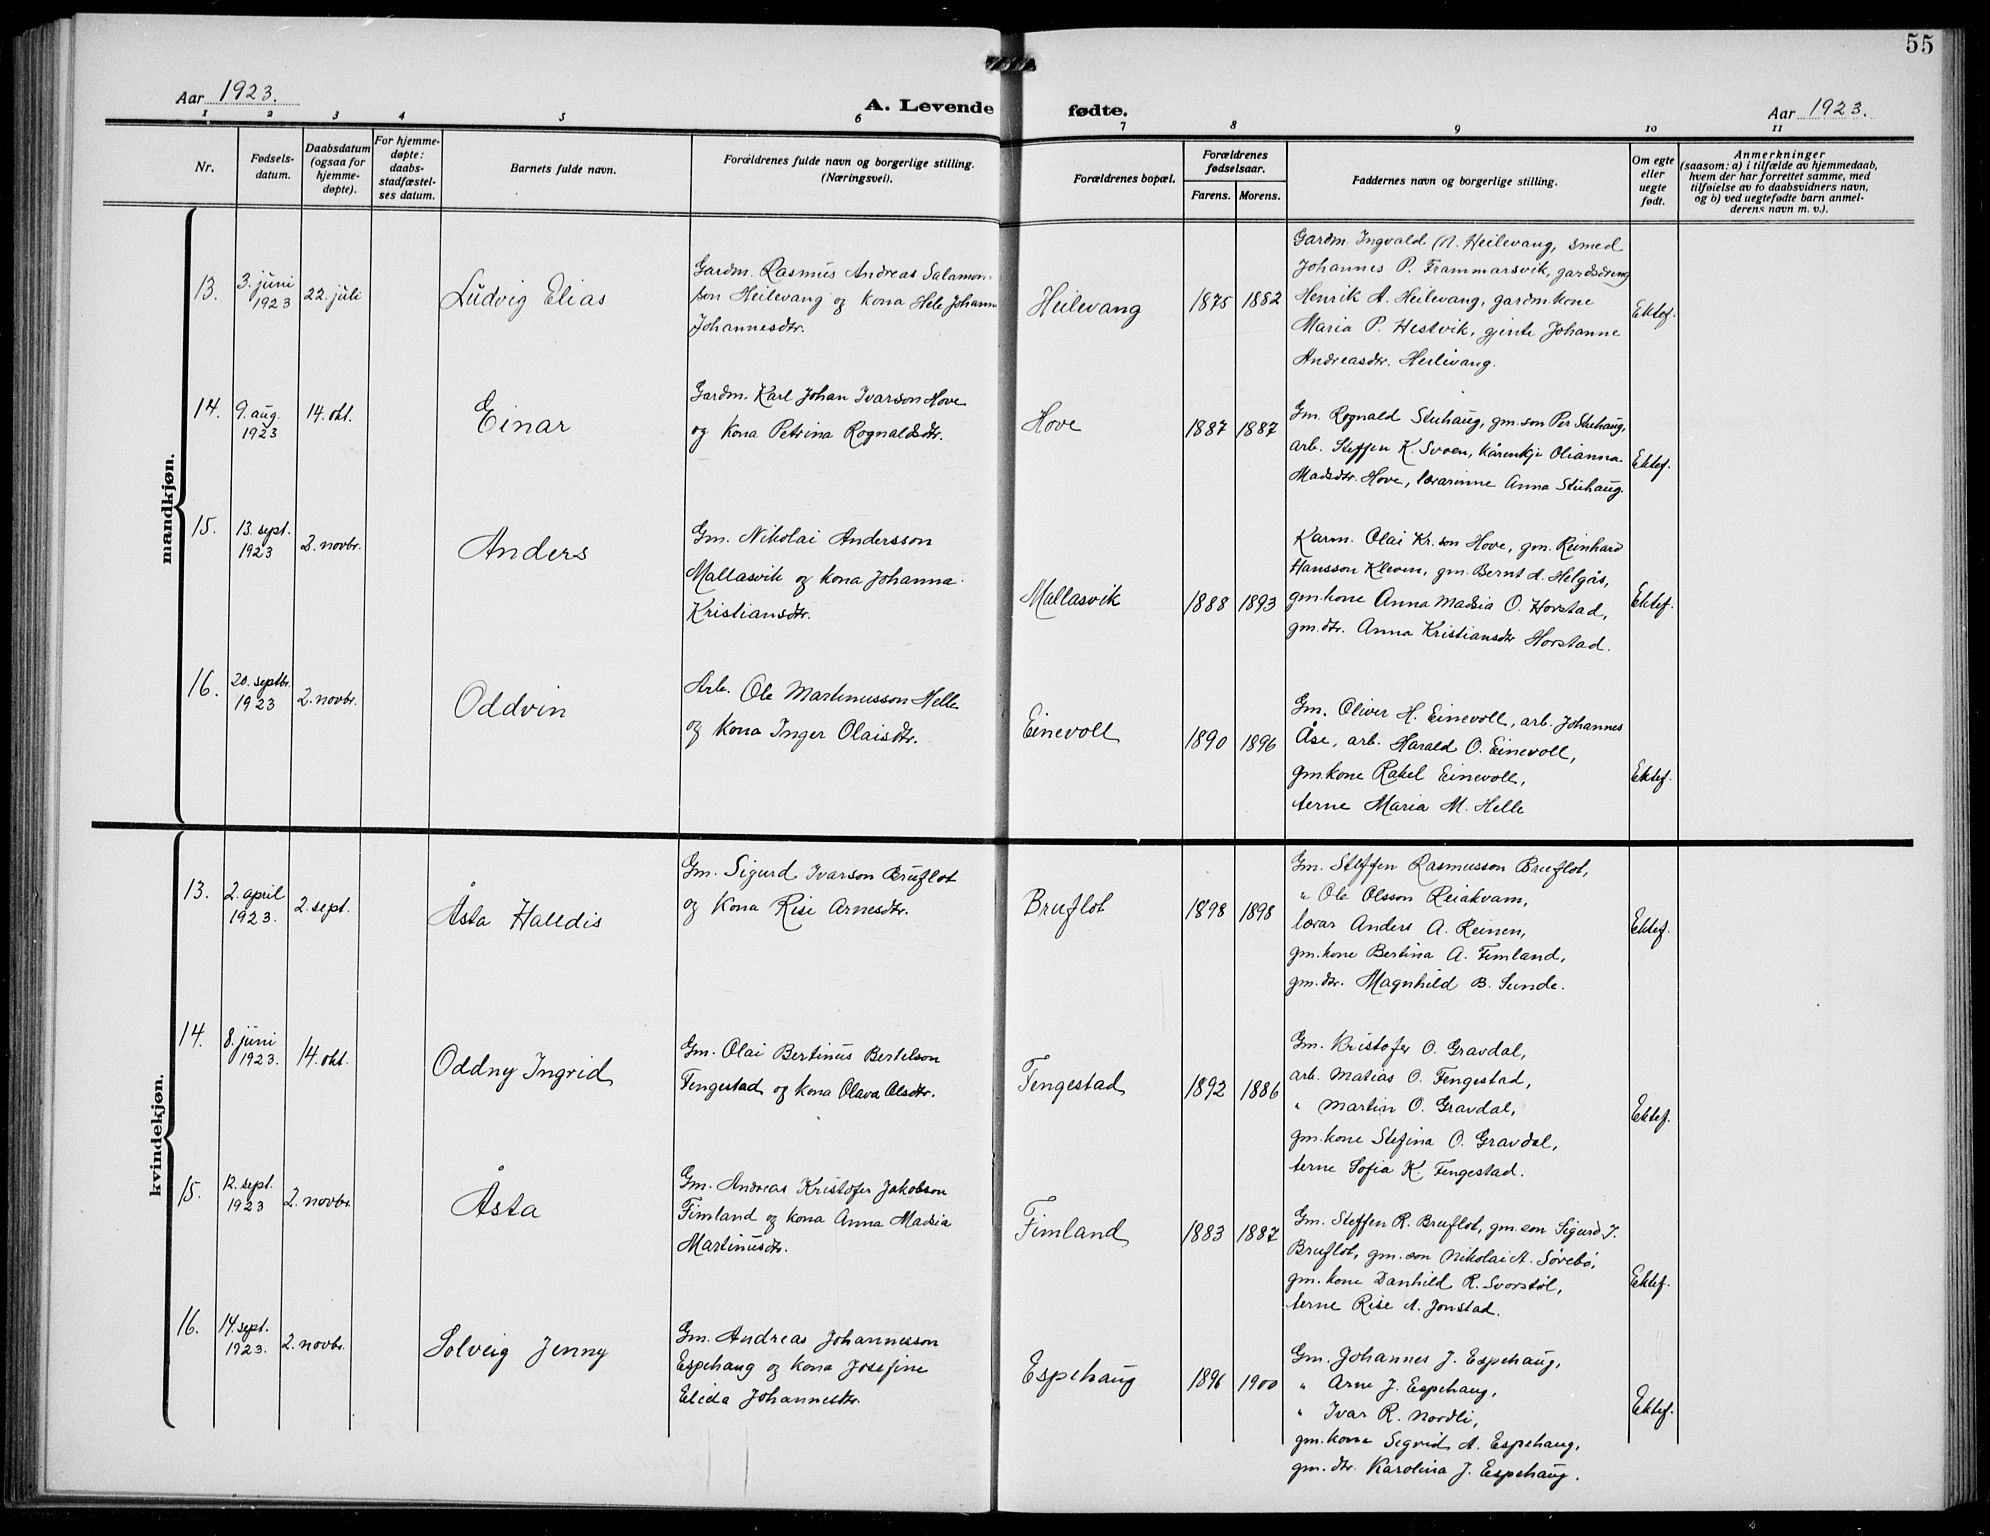 55
Aar 1923.
A. Levende fødte.
Aar 1923.
1 2 3 4 5 6 7 8 9 10 11
Nr.
Fødsels-
datum.
Daabsdatum
(ogsaa for
hjemme-
døpte).
For hjemme-
døpte:
daabs-
stadfæstel-
ses datum.
Barnets fulde navn.
Forældrenes fulde navn og borgerlige stilling.
(Næringsvei).
Forældrenes bopæl.
Forældrenes
fødselsaar.
Farens. Morens.
Faddernes navn og borgerlige stilling.
Om egte
eller
uegte
født.
Anmerkninger
(saasom: a) i tilfælde av hjemmedaab,
hvem der har forrettet samme, med
tilføielse av to daabsvidners navn,
og b) ved uegtefødte barn anmel-
derens navn m. v.).
mandkjøn.
13.
3. juni
1923
22. juli
Ludvig Elias
Gardm. Rasmus Andreas Salamon-
son Heilevang og kona Hele Johanna
Johannesdtr.
Heilevang
1875 1882
Gardm. Ingvald A. Heilevang, smed
Johannes P. Frammarsvik, gardsdreng
Henrik A. Heilevang, gardmkone
Maria P. Hestvik, gjente Johanne
Andreasdtr. Heilevang.
Ektef.
14.
9. aug.
1923
14. okt.
Einar
Gardm. Karl Johan Ivarson Hove
og kona Petrina Rognaldsdtr.
Hove
1887 1887
Gm. Rognald Stuhaug, gm. son Per Stuhaug,
arb. Steffen K. Svoen, kårenkje Olianna
Madsdtr. Hove, lærarinne Anna Stuhaug.
Ektef.
15.
13. sept.
1923
2. novbr.
Anders
Gm. Nikolai Andersson
Mallasvik og kona Johanna
Kristiansdtr.
Mallasvik
1888 1893
Karm. Olai Kr.son Hove, gm. Reinhard
Hansson Kleven, gm. Bernt A. Helgås,
gm.kone Anna Madsia O. Horstad,
gm.dtr. Anna Kristiansdtr Horstad.
Ektef.
16.
20. septbr.
1923
2. novbr.
Oddvin
Arb. Ole Martinusson Helle
og kona Inger Olaisdtr.
Einevoll
1890 1896
Gm. Oliver H. Einevoll, arb. Johannes
Åse, arb. Harald O. Einevoll,
gm.kone Rakel Einevoll,
terne Maria M. Helle
Ektef.
kvindekjøn.
13.
2. april
1923.
2. sept.
Åsta Halldis
Gm. Sigurd Ivarson Bruflot
og kona Rise Arnesdtr.
Bruflot
1898 1898
Gm. Steffen Rasmusson Bruflot,
" Ole Olsson Reiakvam,
lærar Anders A. Reinen,
gm.kone Bertina A. Fimland,
gm.dtr. Magnhild B. Sunde.
Ektef.
14.
8. juni
1923.
14. okt.
Oddny Ingrid
Gm. Olai Bertinus Bertelson
Tengestad og kona Olava Olsdtr.
Tengestad
1892 1886
Gm. Kristofer O. Gravdal,
arb. Matias O. Tengestad,
" Martin O. Gravdal,
gm.kone Stefina O. Gravdal,
terne Sofia K. Tengestad.
Ektef.
15.
12. sept.
1923
2. novbr.
Åsta
Gm. Andreas Kristofer Jakobson
Fimland og kona Anna Madsia
Martinusdtr.
Fimland
1883 1887
Gm. Steffen R. Bruflot, gm. son Sigurd I.
Bruflot, gm. son Nikolai A. Sørebø,
gm. kone Danhild R. Svorstøl,
terne Rise A. Jonstad.
Ektef.
16.
14. sept.
1923.
2. novbr.
Solveig Jenny
Gm. Andreas Johannesson
Espehaug og kona Josefine
Elida Johannesdtr.
Espehaug
1896 1900
Gm. Johannes J. Espehaug,
" Arne J. Espehaug,
" Ivar R. Nordli,
gm.kona Sigrid A. Espehaug,
gm. dtr. Karolina J. Espehaug.
Ektef.